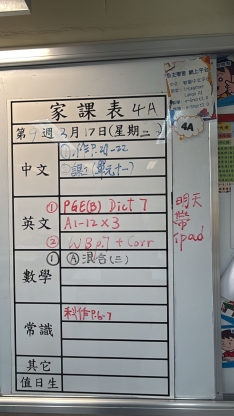 家課表 4A
第9週 3月17日(星期二)
中文
① 作 P.21-22
② 課 (單元十一)
英文
① PGE(B) Dict 7
A1-12 x 3
② WB p.7 + Corr
數學
① Ⓐ 混合(三)
常識
科作 P.6-7
其它
值日生
4A
明天
帶
ipad